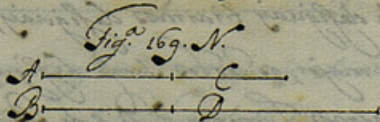 Fig.ª 169. N.
A C
B D